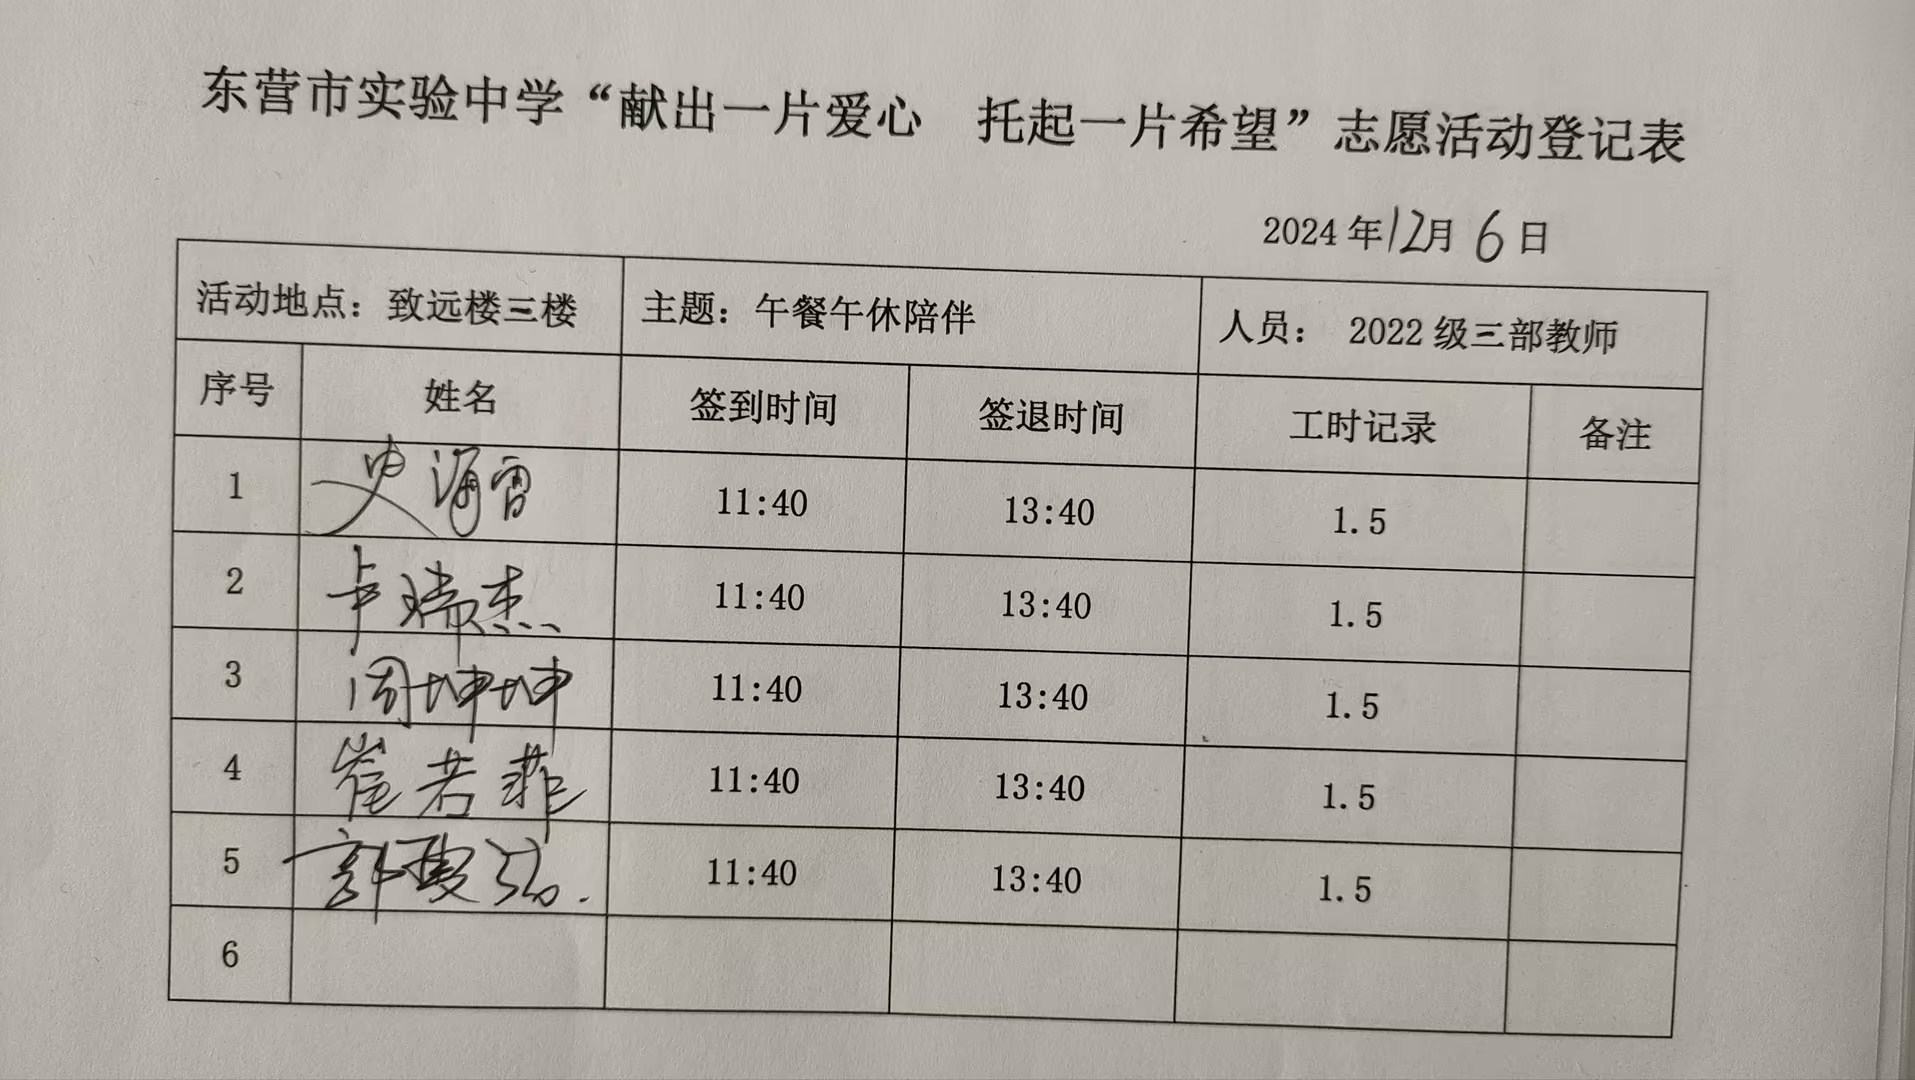 东营市实验中学“献出一片爱心 托起一片希望”志愿活动登记表
2024年12月6日
活动地点：致远楼三楼 主题：午餐午休陪伴 人员： 2022级三部教师
序号 姓名 签到时间 签退时间 工时记录 备注
1 史海雷 11:40 13:40 1.5
2 卞瑞杰 11:40 13:40 1.5
3 周坤坤 11:40 13:40 1.5
4 崔若菲 11:40 13:40 1.5
5 郭 11:40 13:40 1.5
6